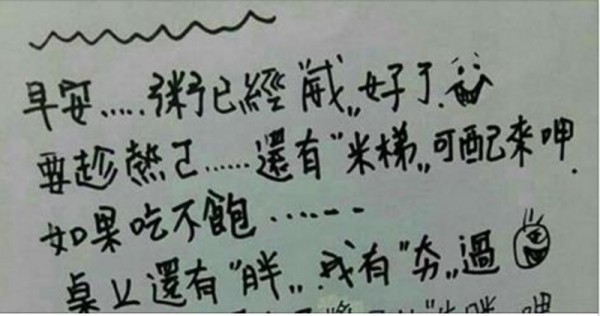 早安.....粥已經"減"好了.
要趁熱ㄛ......還有"米梯"可配來呷.
如果吃不飽......
桌上還有"胖"..我有"夯"過